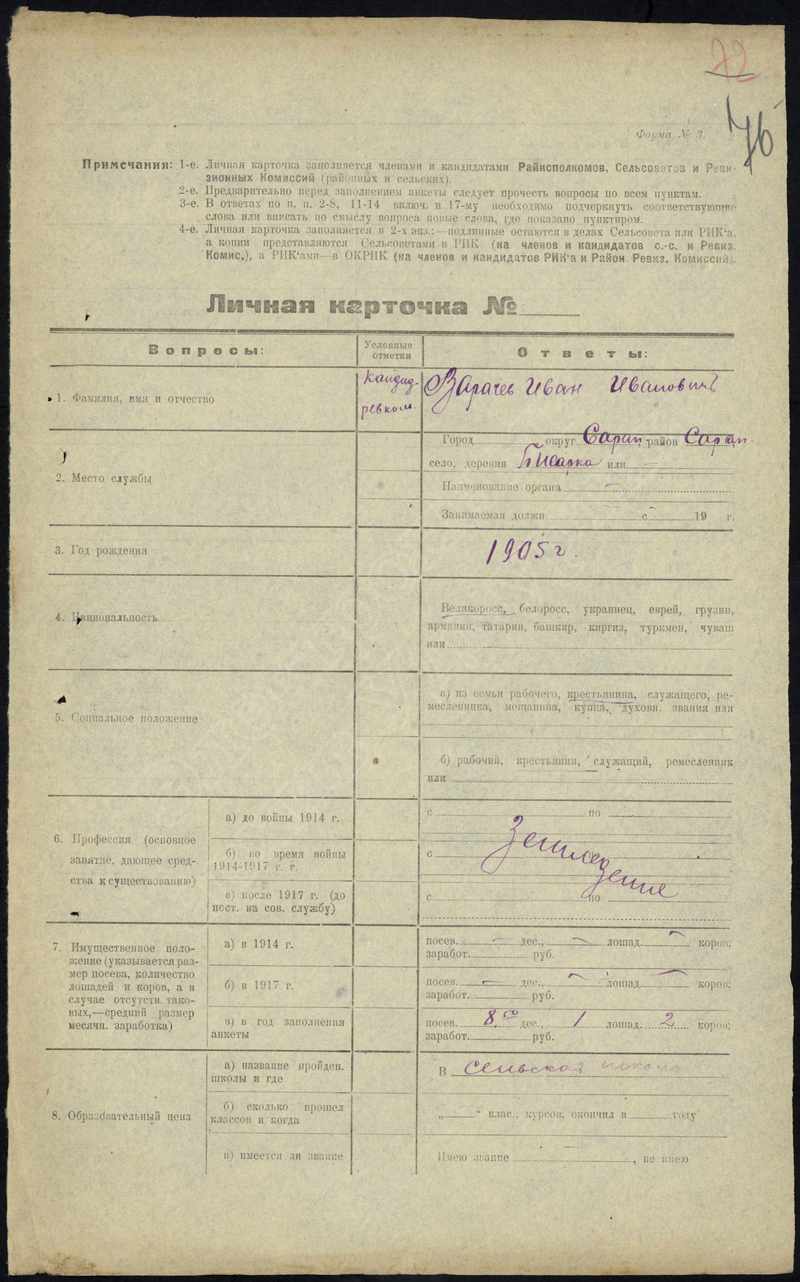 72
76
Форма № 3.
Примечания: 1-е. Личная карточка заполняется членами и кандидатами Райисполкомов, Сельсоветов и Реви-
зионных Комиссий (районных и сельских).
2-е. Предварительно перед заполнением анкеты следует прочесть вопросы по всем пунктам.
3-е. В ответах по п. п. 2-8, 11-14 включ. и 17-му необходимо подчеркнуть соответствующие
слова или вписать по смыслу вопроса новые слова, где показано пунктиром.
4-е. Личная карточка заполняется в 2-х экз.:—подлинные остаются в делах Сельсовета или РИК'а,
а копии представляются Сельсоветами в РИК (на членов и кандидатов с.-с. и Ревиз.
Комис.), а РИК'ами—в ОКРИК (на членов и кандидатов РИК'а и Район. Ревиз. Комиссий).
Личная карточка №
Вопросы:
Условные отметки
Ответы:
1. Фамилия, имя и отчество
Кандид.
ревком.
Иван Иванович
2. Место службы
Город округ Сарап. район Сарап.
село, деревня или
Наименование органа
Занимаемая должн. с 19 г.
3. Год рождения
1905 г.
4. Национальность
Великоросс, белоросс, украинец, еврей, грузин,
армянин, татарин, башкир, киргиз, туркмен, чуваш
или
5. Социальное положение
а) из семьи рабочего, крестьянина, служащего, ре-
месленника, мещанина, купца, духовн. звания или
б) рабочий, крестьянин, служащий, ремесленник
или
6. Профессия (основное
занятие, дающее сред-
ства к существованию)
а) до войны 1914 г.
с по
б) во время войны
1914-1917 г. г.
с
Земледелие
в) после 1917 г. (до
пост. на сов. службу)
с по
7. Имущественное поло-
жение (указывается раз-
мер посева, количество
лошадей и коров, а в
случае отсутств. тако-
вых,—средний размер
месячн. заработка)
а) в 1914 г.
посев. дес., лошад. коров;
заработ. руб.
б) в 1917 г.
посев. дес., лошад. коров;
заработ. руб.
в) в год заполнения
анкеты
посев. 8 дес., 1 лошад. 2 коров;
заработ. руб.
8. Образовательный ценз
а) название пройден.
школы и где
В сельской школе
б) сколько прошел
классов и когда
„ " клас., курсов, окончил в году
в) имеется ли звание
Имею звание , не имею